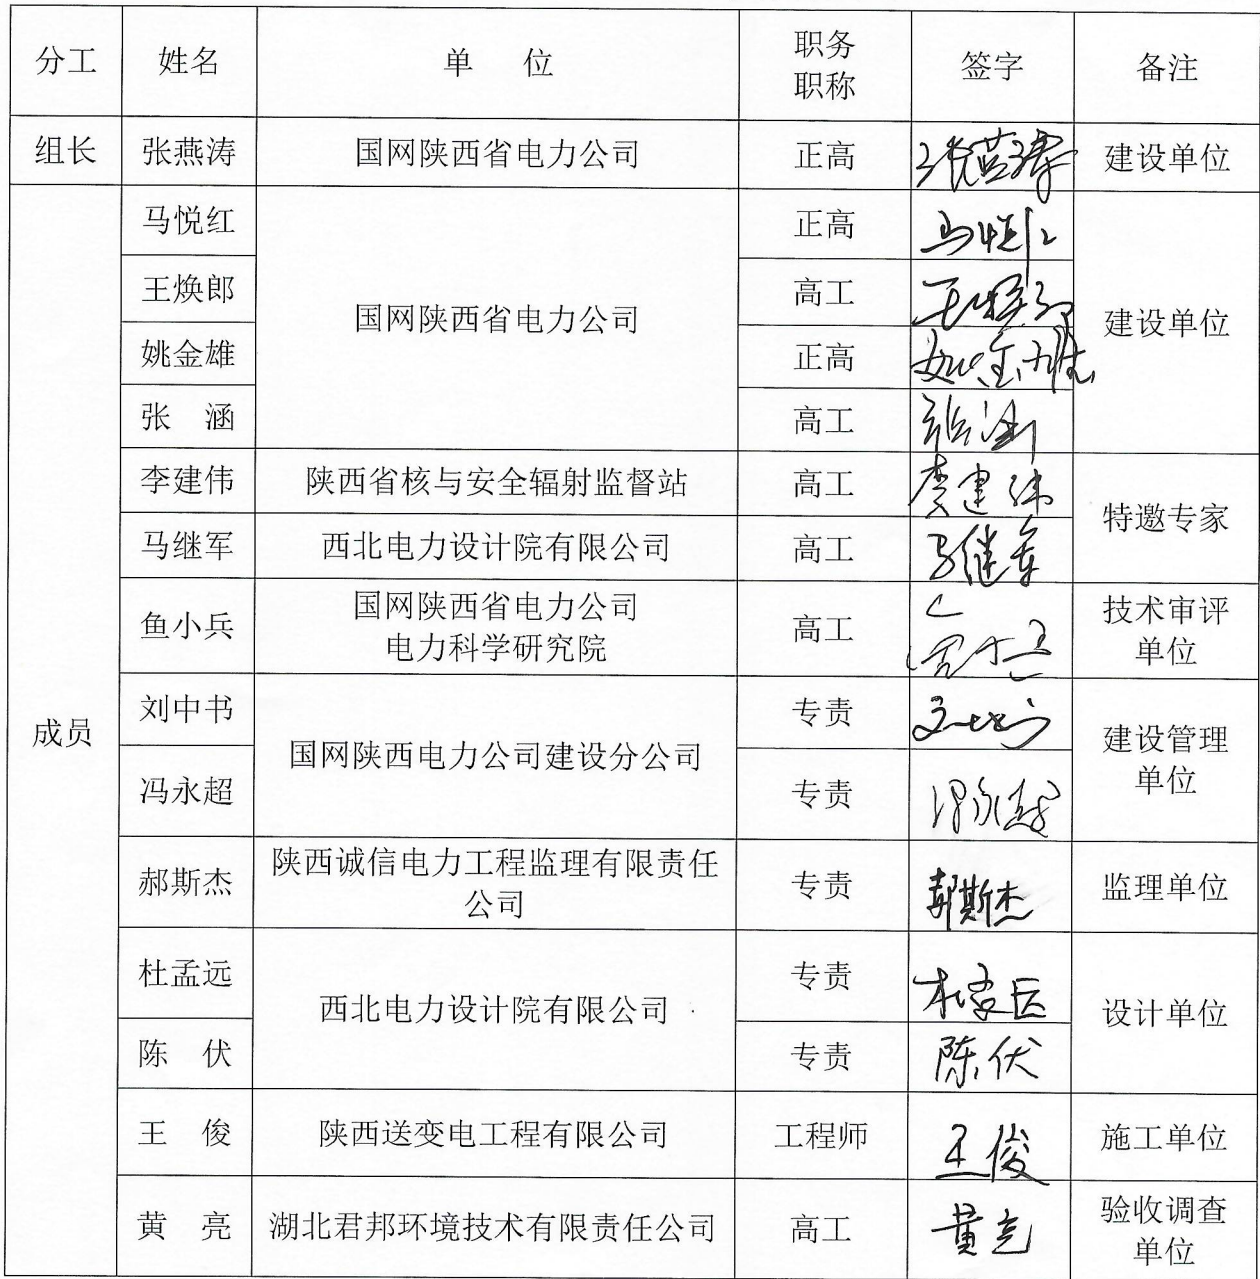 分工 姓名 单 位 职务职称 签字 备注
组长 张燕涛 国网陕西省电力公司 正高 张燕涛 建设单位
成员 马悦红 国网陕西省电力公司 正高 马悦红 建设单位
王焕郎 高工 王焕郎
姚金雄 正高 姚金雄
张 涵 高工 张涵
李建伟 陕西省核与安全辐射监督站 高工 李建伟 特邀专家
马继军 西北电力设计院有限公司 高工 马继军
鱼小兵 国网陕西省电力公司 高工 技术审评
电力科学研究院 单位
刘中书 国网陕西电力公司建设分公司 专责 建设管理
单位
冯永超 专责 冯永超
郝斯杰 陕西诚信电力工程监理有限责任 专责 郝斯杰 监理单位
公司
杜孟远 西北电力设计院有限公司 专责 杜孟远 设计单位
陈 伏 专责 陈伏
王 俊 陕西送变电工程有限公司 工程师 王俊 施工单位
黄 亮 湖北君邦环境技术有限责任公司 高工 黄亮 验收调查
单位